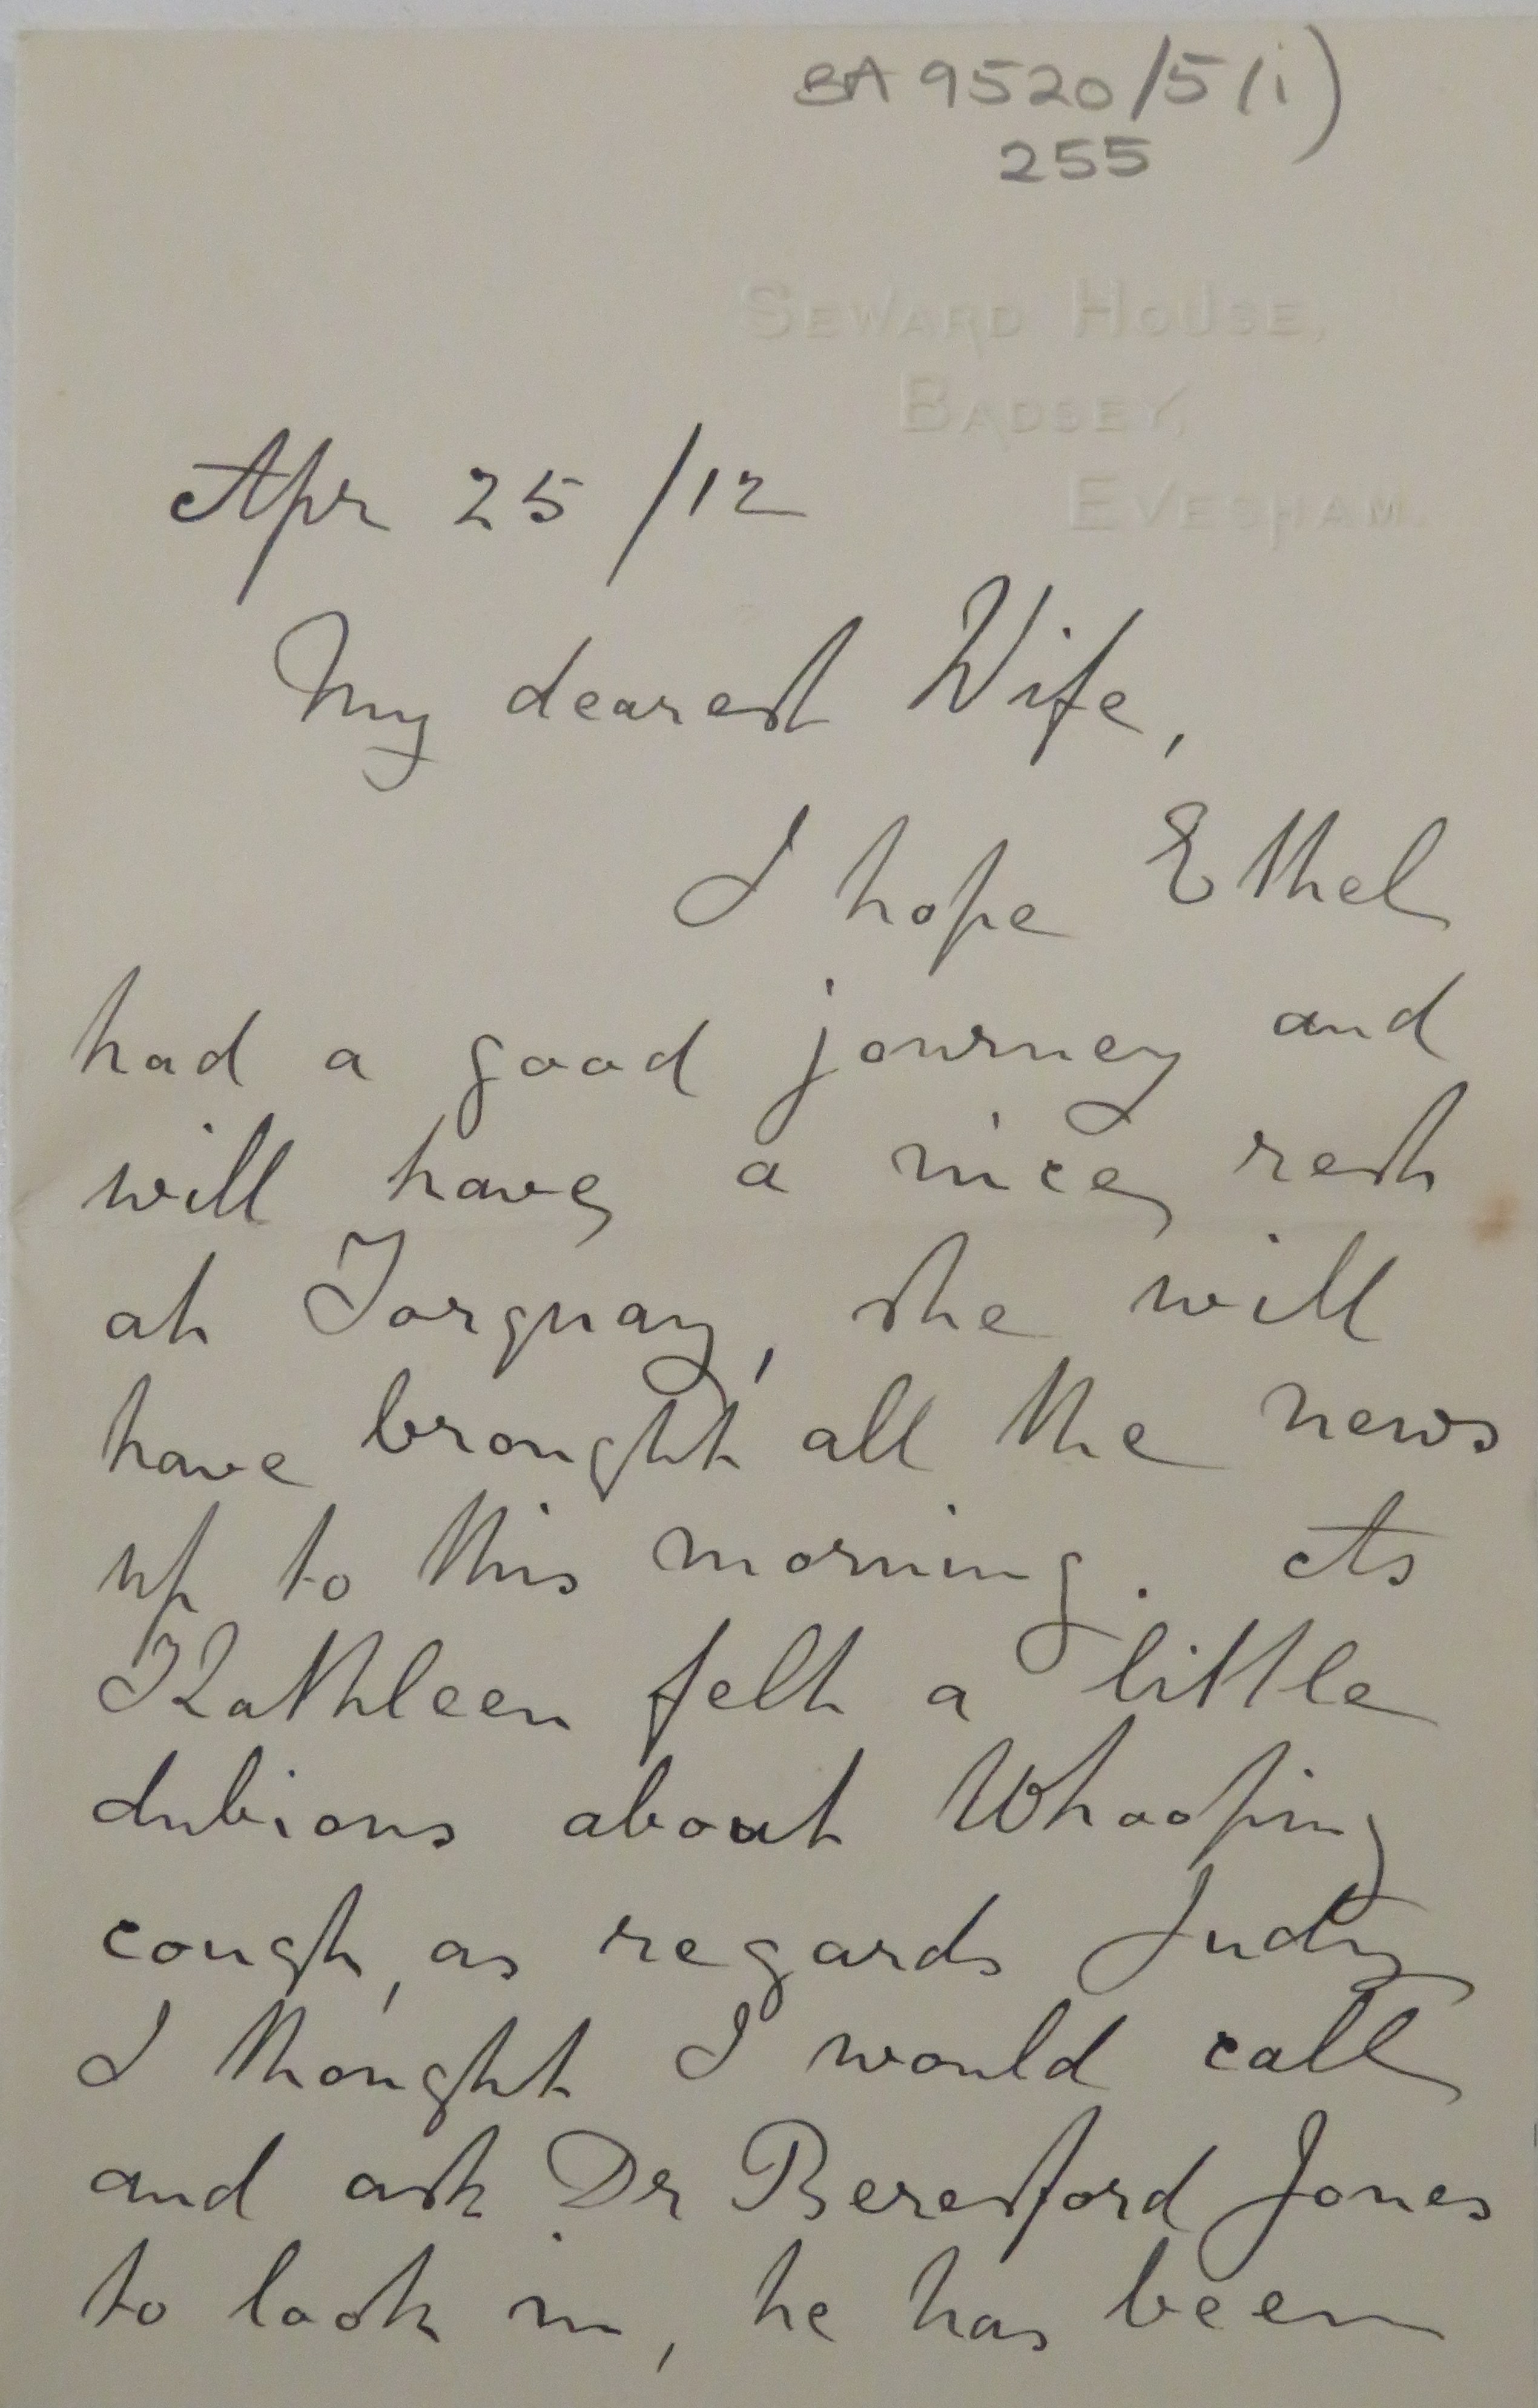 BA 9520/5(i)
255
SEWARD HOUSE,
BADSEY,
EVESHAM.
Apr 25/12
My dearest Wife,
I hope Ethel
had a good journey and
will have a nice rest
at Torquay, she will
have brought all the news
up to this morning. As
Kathleen felt a little
dubious about Whooping
cough, as regards Judy
I thought I would call
and ask Dr Beresford Jones
to look in, he has been